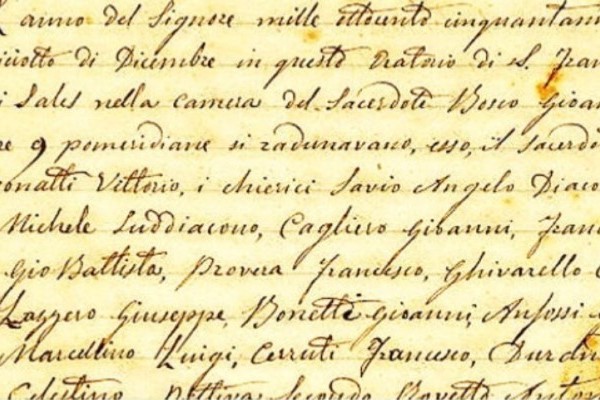 anno del Signore mille ottocento cinquantan
iciotto di Dicembre in questo Oratorio di S. Fran
i Sales nella camera del Sacerdote Bosco Gioan
re 9 pomeridiane si radunavano, esso, il Sacerdo
onatti Vittorio, i chierici Savio Angelo Diaco
Michele Suddiacono, Cagliero Gioanni, Fran
Gio Battista, Provera Francesco, Ghivarello C
Lazzero Giuseppe, Bonetti Gioanni, Anfossi
Marcellino Luigi, Cerruti Francesco, Durand
Celestino, Pettiva Secondo, Rovetto Anton